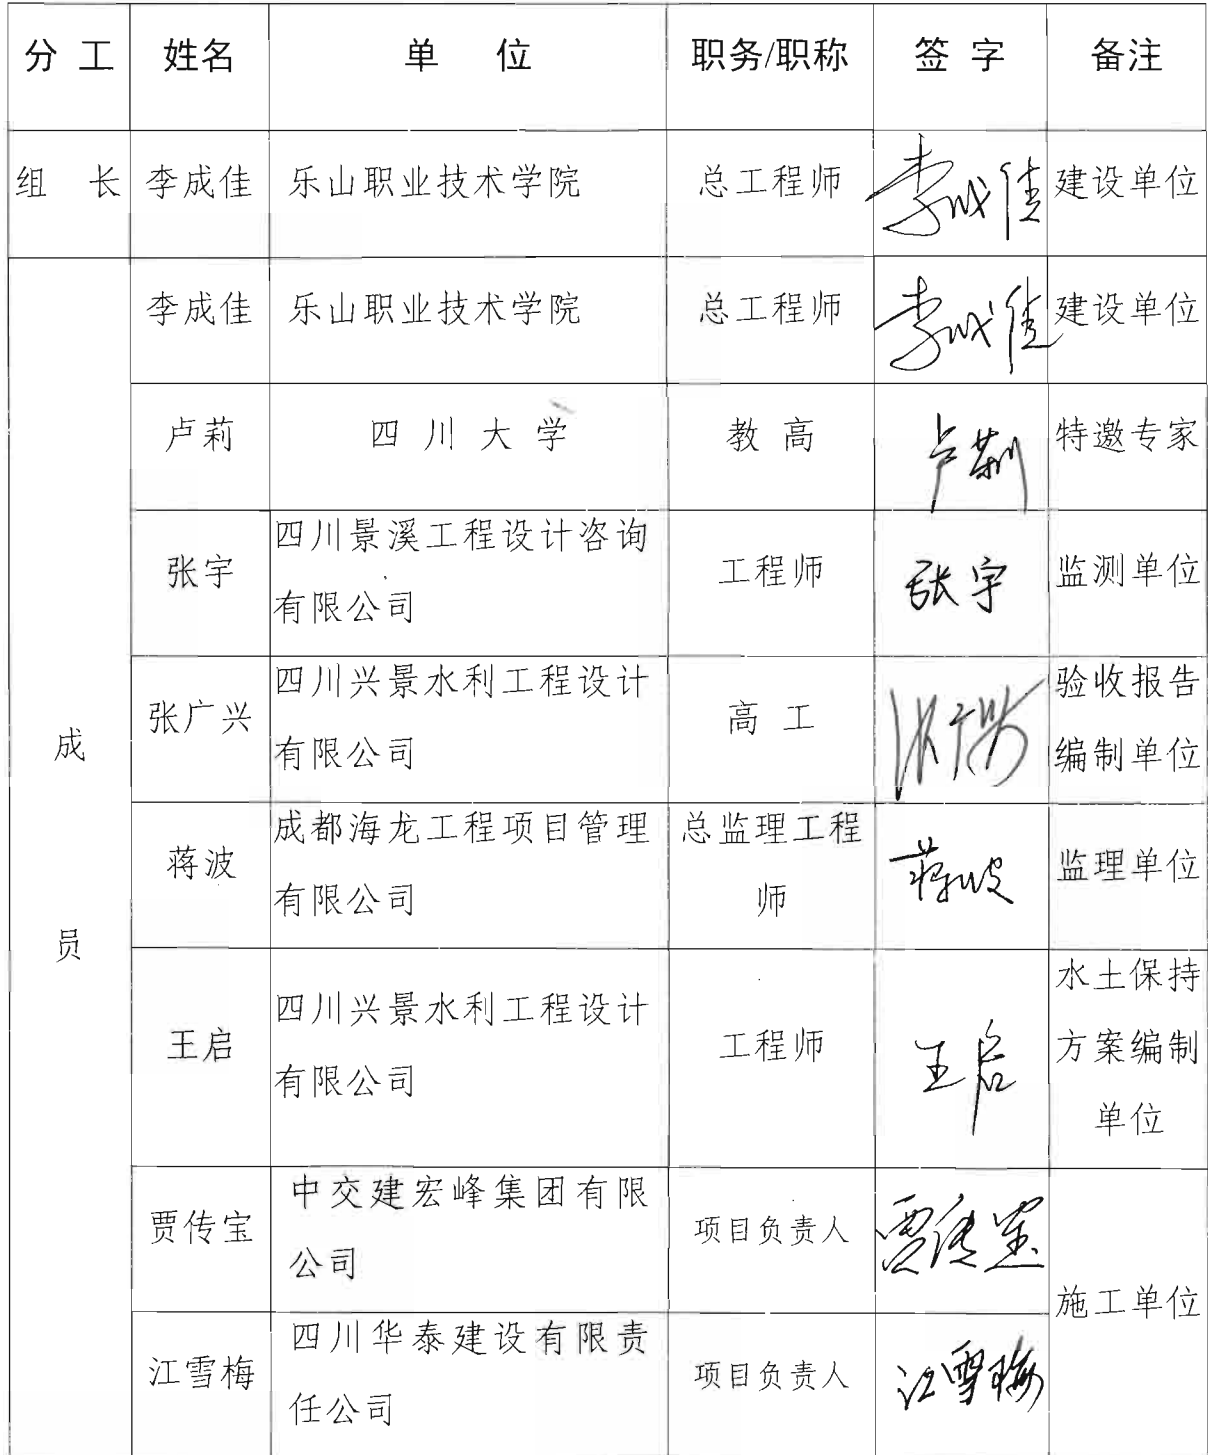 分 工 姓名 单 位 职务/职称 签 字 备注
组 长 李成佳 乐山职业技术学院 总工程师 李成佳 建设单位
李成佳 乐山职业技术学院 总工程师 李成佳 建设单位
卢莉 四 川 大 学 教 高 卢莉 特邀专家
张宇
四川景溪工程设计咨询
有限公司
工程师
张宇
监测单位
张广兴
四川兴景水利工程设计
有限公司
高 工
张广兴
验收报告
编制单位
成
员
蒋波
成都海龙工程项目管理
有限公司
总监理工程
师
蒋波
监理单位
王启
四川兴景水利工程设计
有限公司
工程师
王启
水土保持
方案编制
单位
贾传宝
中交建宏峰集团有限
公司
项目负责人
贾传宝
施工单位
江雪梅
四川华泰建设有限责
任公司
项目负责人
江雪梅